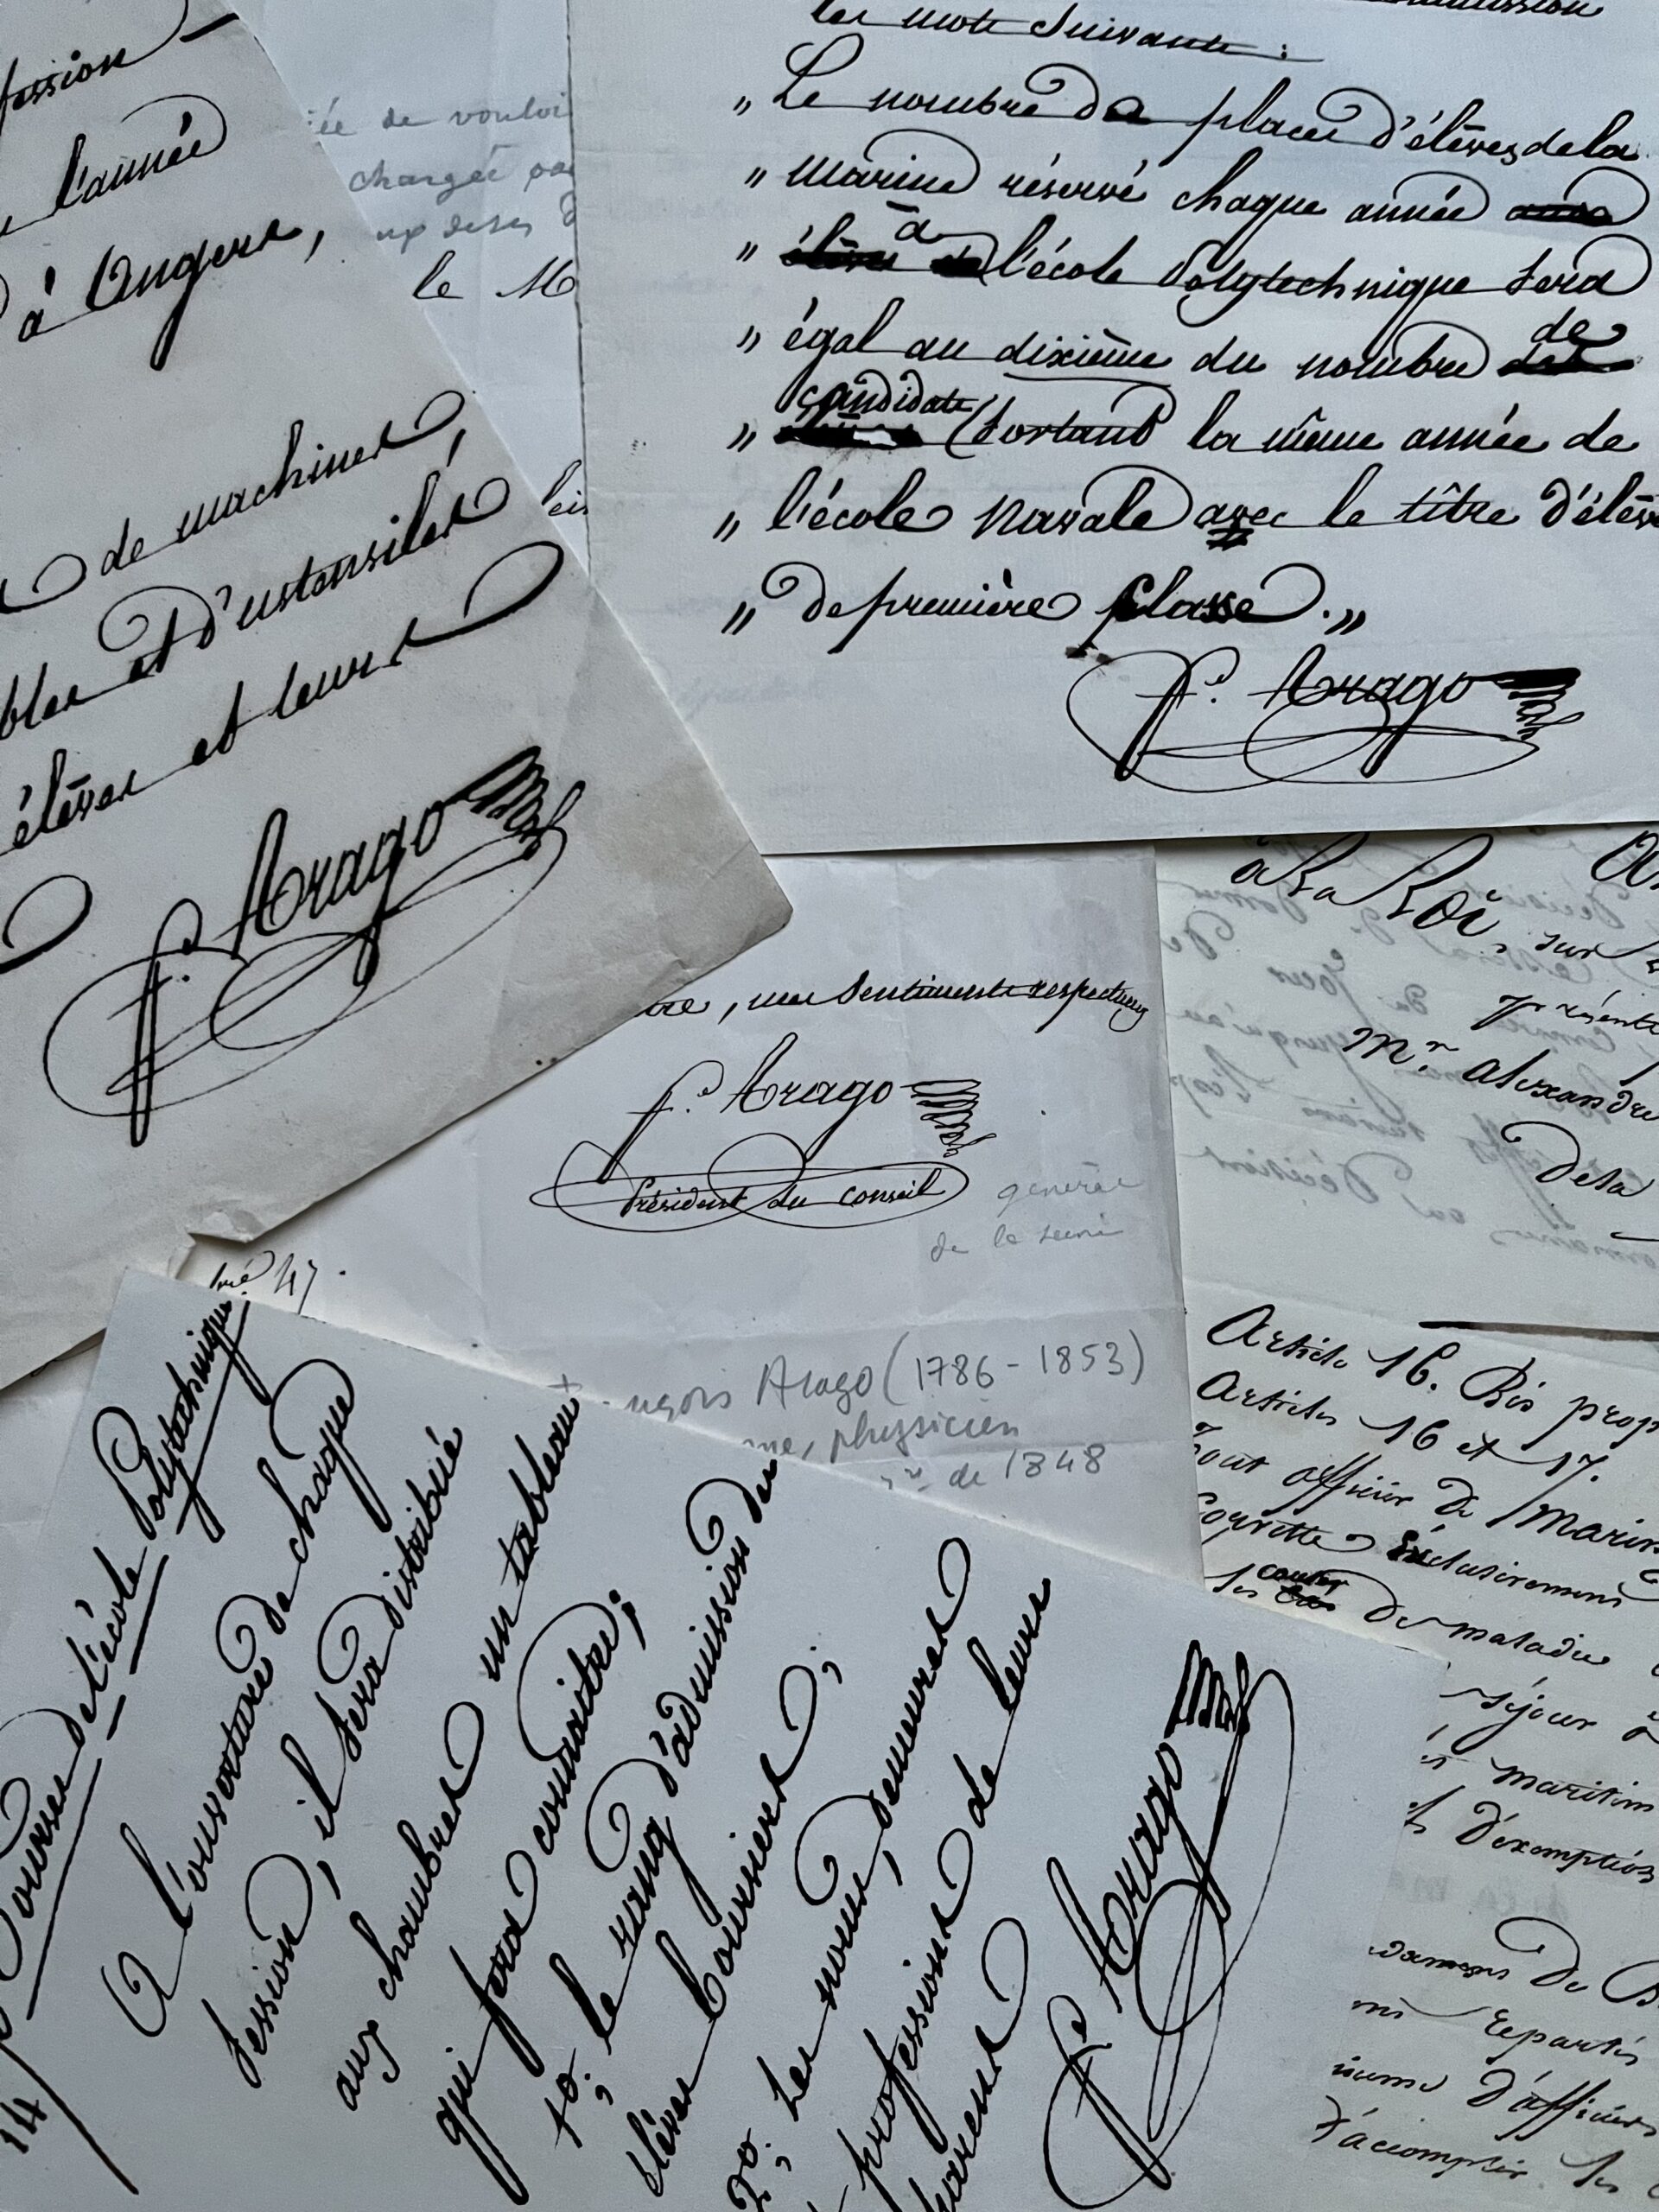 fession
l'année
à Angers,
de machines,
bles et d'ustensiles,
élèves et leurs
fs. Arago
ée de vouloi
chargée pa
le M
les mots suivants :
„ Le nombre de places d'élèves de la
„ marine réservé chaque année
„ à l'école Polytechnique sera
„ égal au dixième du nombre de
„ candidats sortant la même année de
„ l'école navale avec le titre d'élèv
„ de première classe. „
fs. Arago
tre, mes sentiments respectueux
fs. Arago
Président du conseil général
de la Seine
47.
nçois Arago (1786-1853)
me, physicien
de 1848
au Roi, sur
présenté
Mr. Alexandre
de la
Article 16. Bis prop
Articles 16 et 17.
Tout officier de Marin
Corvette exclusivement
les causes de maladie
séjour
maritim
d'exemption
de B
répartis
d'officiers
d'accomplir les
14
Bourses de l'école Polytechnique
A l'ouverture de chaque
session, il sera distribué
aux chambres un tableau
qui fera connaître;
1o. le rang d'admission des
élèves boursiers;
2o. les noms, demeures
professions de leurs
parents
fs. Arago